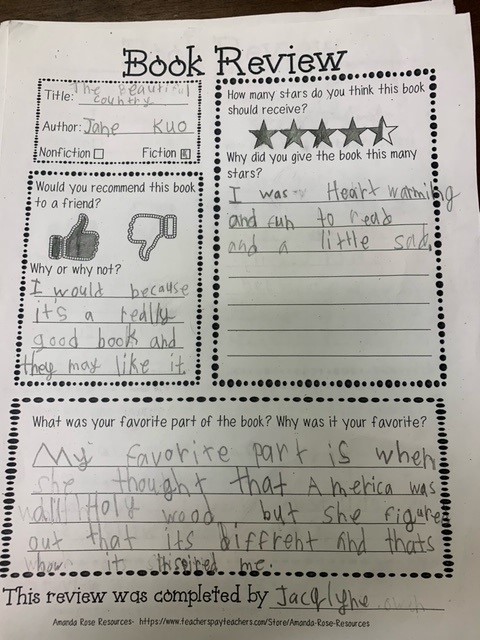 Book Review
Title: The Beautiful
Country
Author: Jane Kuo
Nonfiction
Fiction
How many stars do you think this book
should receive?
Why did you give the book this many
stars?
I was Heart warming
and fun to read
and a little sad.
Would you recommend this book
to a friend?
Why or why not?
I would because
it's a really
good book and
they may like it.
What was your favorite part of the book? Why was it your favorite?
My favorite part is when
she thought that America was
all Holy wood but she figured
out that its diffrent and thats
how it inspired me.
This review was completed by Jacqlyne
Amanda Rose Resources- https://www.teacherspayteachers.com/Store/Amanda-Rose-Resources